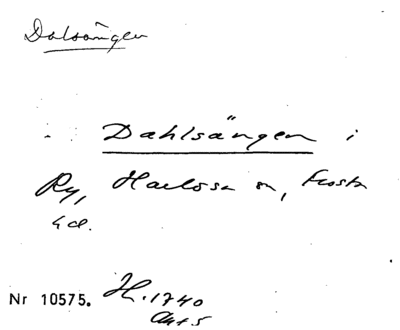 Dalsängen
Dahlsängen i
Ry, Harlösa sn, Frosta
hd.
Nr 10575. H. 1740
Akt 5